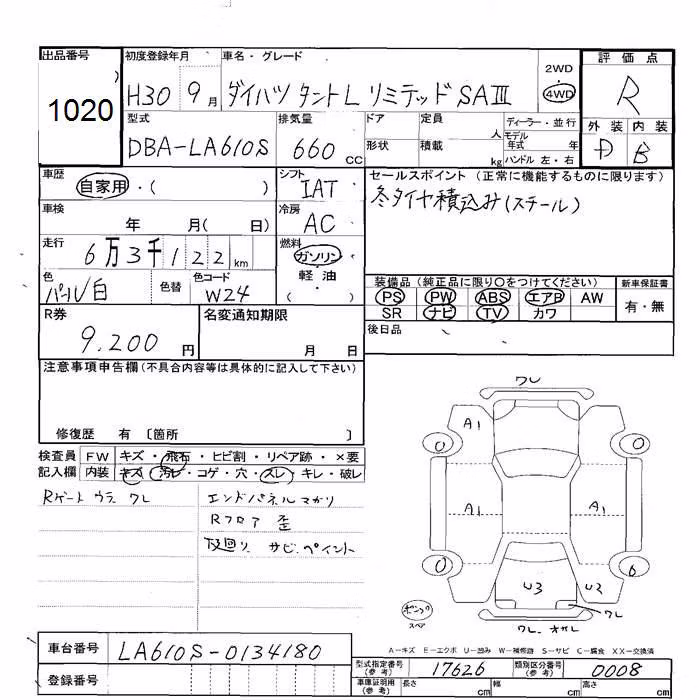 出品番号 初度登録年月 車名・グレード 2WD 評価点
1020 H30 9月 ダイハツ タントL リミテッド SAⅢ 4WD R
型式 排気量 ドア 定員 人 ディーラー・並行 外装 内装
DBA-LA610S 660CC 形状 積載 kg モデル年式 年 ハンドル 左・右 D B
車歴 自家用・( ) シフト IAT セールスポイント (正常に機能するものに限ります)
車検 年 月( 日) 冷房 AC 冬タイヤ積込み(スチール)
走行 6万3千122km 燃料 ガソリン
色 パール白 色替 色コード W24 軽油 ( )
装備品(純正品に限り○をつけてください) 新車保証書
PS PW ABS エアB AW 有・無
SR ナビ TV カワ
R券 9.200円 名変通知期限 月 日 後日品
注意事項申告欄(不具合内容等は具体的に記入して下さい)
修復歴 有 〔箇所 〕
検査員 FW キズ・飛石・ヒビ割・リペア跡・×要
記入欄 内装 キズ・汚レ・コゲ・穴・スレ・キレ・破レ
Rゲート ウラ ワレ エンドパネル マガリ
Rフロア 歪
下廻り サビ.ペイント
ワレ
A1
0 0
A1 A1
0 6
W3 W2
ワレ
パンク
スペア
ワレ.オサレ
A−キズ E−エクボ U−凹み W−補修跡 S−サビ C−腐食 XX−交換済
車台番号 LA610S-0134180
登録番号
型式指定番号(参考) 17626 類別区分番号(参考) 0008
車庫証明用(参考) 長さ cm 幅 cm 高さ cm